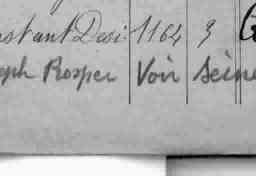 nstant Desi 1164 3
eph Rosper Voir Seine